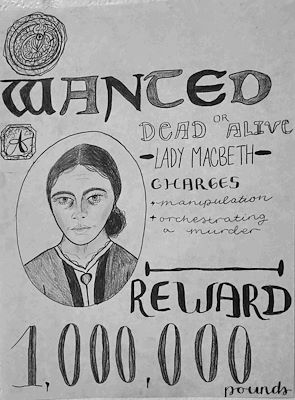 WANTED
DEAD OR ALIVE
A
-LADY MACBETH-
CHARGES
+manipulation
+orchestrating
a murder
REWARD
1,000,000
pounds